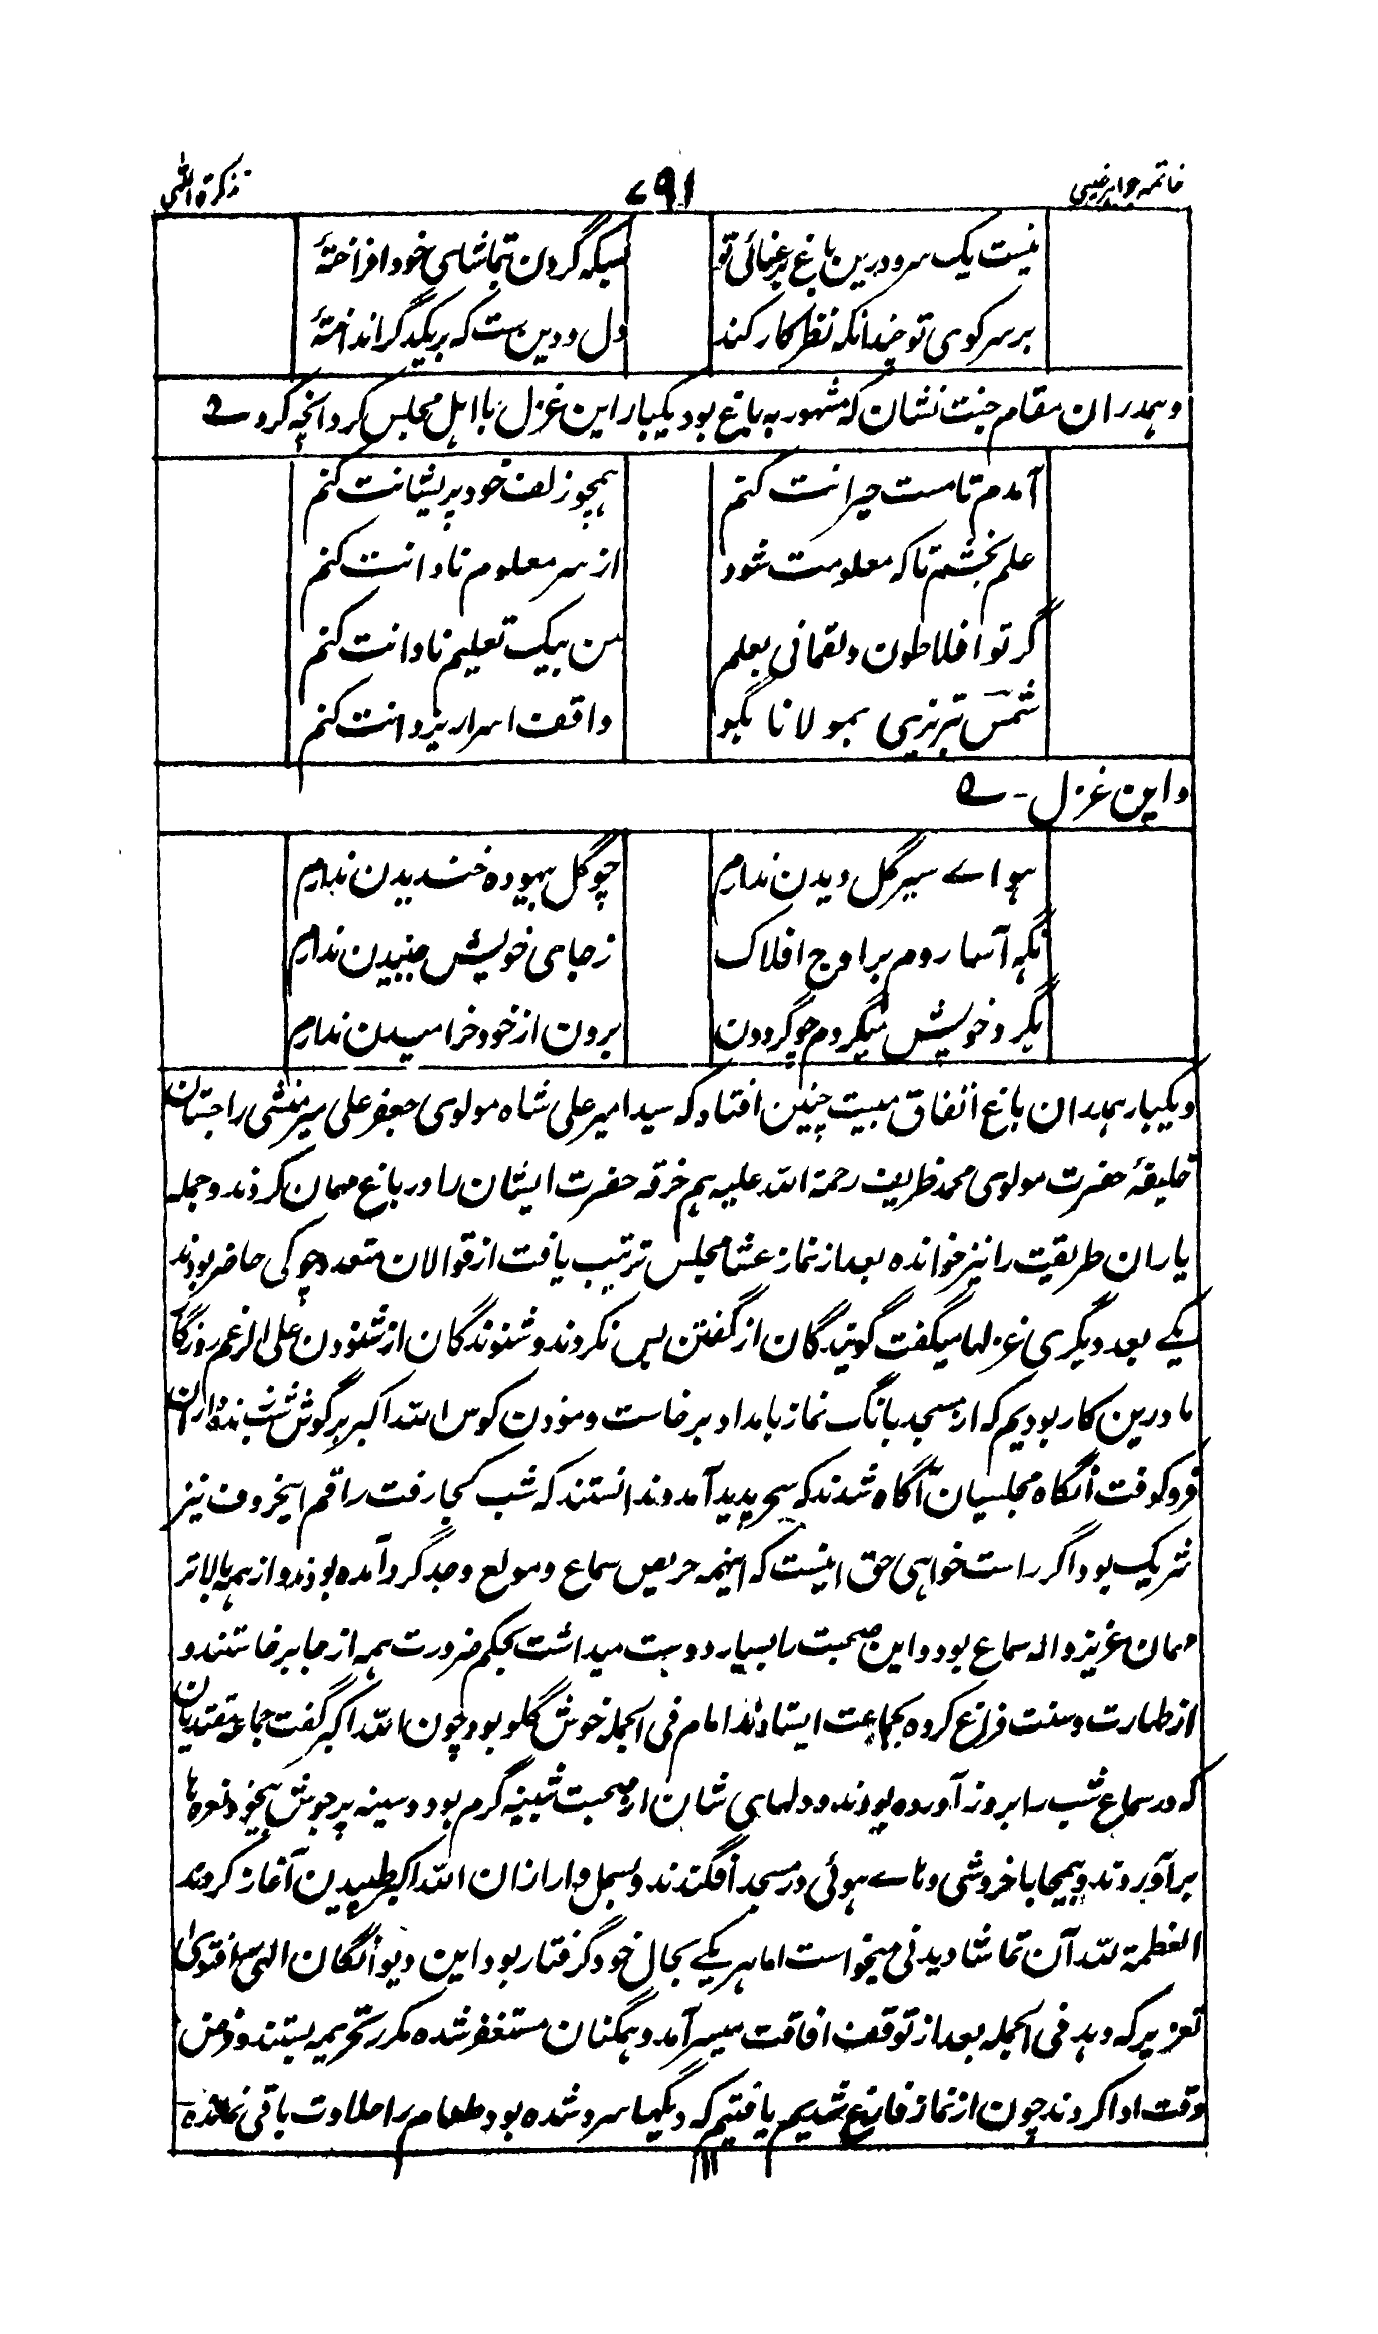 خاتمه جواهر غیبی ۷۹۱ تذکرة الٰهی
نیست یک سرو درین باغ برعنائی تو بسیکه گردن تماشای خود افراختهٔ
بر سر کوی تو چندانکه نظر کار کند دل و دین ست که بر یکدگر انداختهٔ
و همدران مقام جنت نشان که مشهور به باغ بود یکبار این غزل با اهل مجلس کرد انچه کرد ے
آمدم تا مست حیرانت کنم همچو زلف خود پریشانت کنم
علم بخشم تا که معلومت شود از سر معلوم نادانت کنم
گر تو افلاطون و لقمانی بعلم من بیک تعلیم نادانت کنم
شمس تبریزی بمولانا بگو واقف اسرار یزدانت کنم
و این غزل - ے
هواے سیر گل دیدن ندارم چو گل بیهوده خندیدن ندارم
نگه آسا روم بر اوج افلاک ز جای خویش جنبیدن ندارم
بگرد خویش میگردم چو گردون برون از خود خرامیدن ندارم
و یکبار همدران باغ اتفاق مبیت چنین افتاد که سید امیر علی شاه مولوی جعفر علی میر منشی راجستان
خلیفهٔ حضرت مولوی محمد ظریف رحمة الله علیه هم خرقه حضرت ایشان را در باغ مهمان کردند و جمله
یاران طریقت را نیز خوانده بعد از نماز عشا مجلس ترتیب یافت از قوالان متعدد چوکی حاضر بودند
یکے بعد دیگری غزلها میگفت گویندگان از گفتن بس نکردند و شنوندگان از شنودن علی الرغم روزگار
ما درین کار بودیم که از مسجد بانگ نماز بامداد برخاست و موذن کوس الله اکبر بر گوش شب زنده داران
فرو کوفت آنگاه مجلسیان آگاه شدند که سحر پدید آمد و ندانستند که شب کجا رفت راقم اینحروف نیز
شریک بود اگر راست خواهی حق اینست که اینهمه حریص سماع و مولع وجد گرد آمده بودند و از همه بالاتر
مهمان عزیز واله سماع بود و این صحبت را بسیار دوست میداشت بحکم ضرورت همه از جا برخاستند و
از طهارت و سنت فراغ کرده بجماعت ایستادند امام فی الجمله خوش گلو بود چون الله اکبر گفت جماعه مقتدیان
که در سماع شب را بروز آورده بودند و دلهای شان از صحبت شبینه گرم بود و سینه پر جوش بیخود نعره ها
برآوردند و بیمحابا خروشی و هاے هوئی در مسجد افگندند و بسمل وار ازان الله اکبر طپیدن آغاز کردند
العظمة لله آن تماشا دیدنی میخواست اما هر یکے بحال خود گرفتار بود این دیوانگان الهی را فتوی
تعزیر که دهد فی الجمله بعد از توقف افاقت میسر آمد و همگنان مستغفر شده مکرر تحریمه بستند و فرض
وقت ادا کردند چون از نماز فارغ شدیم یافتیم که دیگها سرد شده بود طعام را حلاوت باقی نمانده